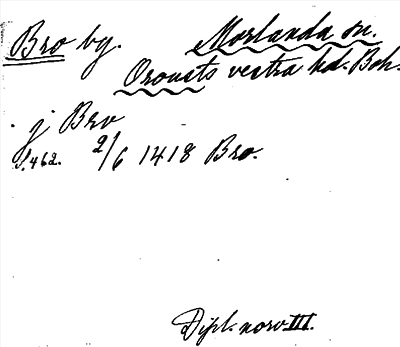 Bro by. Morlanda sn.
Orousts vestra hd. Boh.
j Bro
S. 462. 2/6 1418 Bro.
Dipl. norv. III.